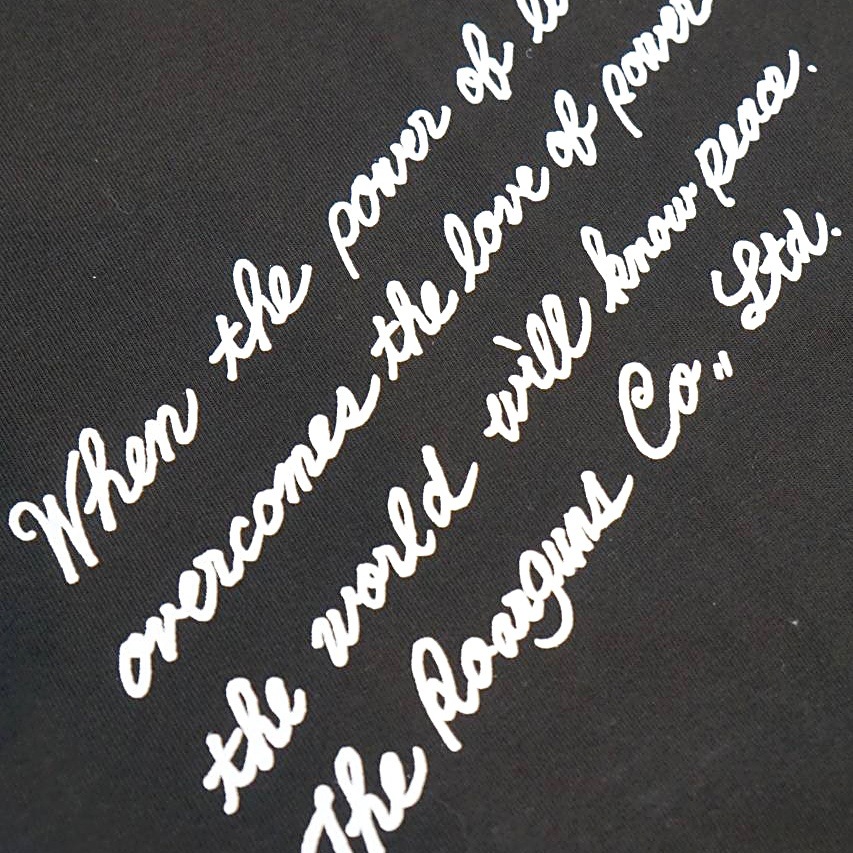 When the power of lo
overcomes the love of power
the world will know peace.
The Roarguns Co., Ltd.